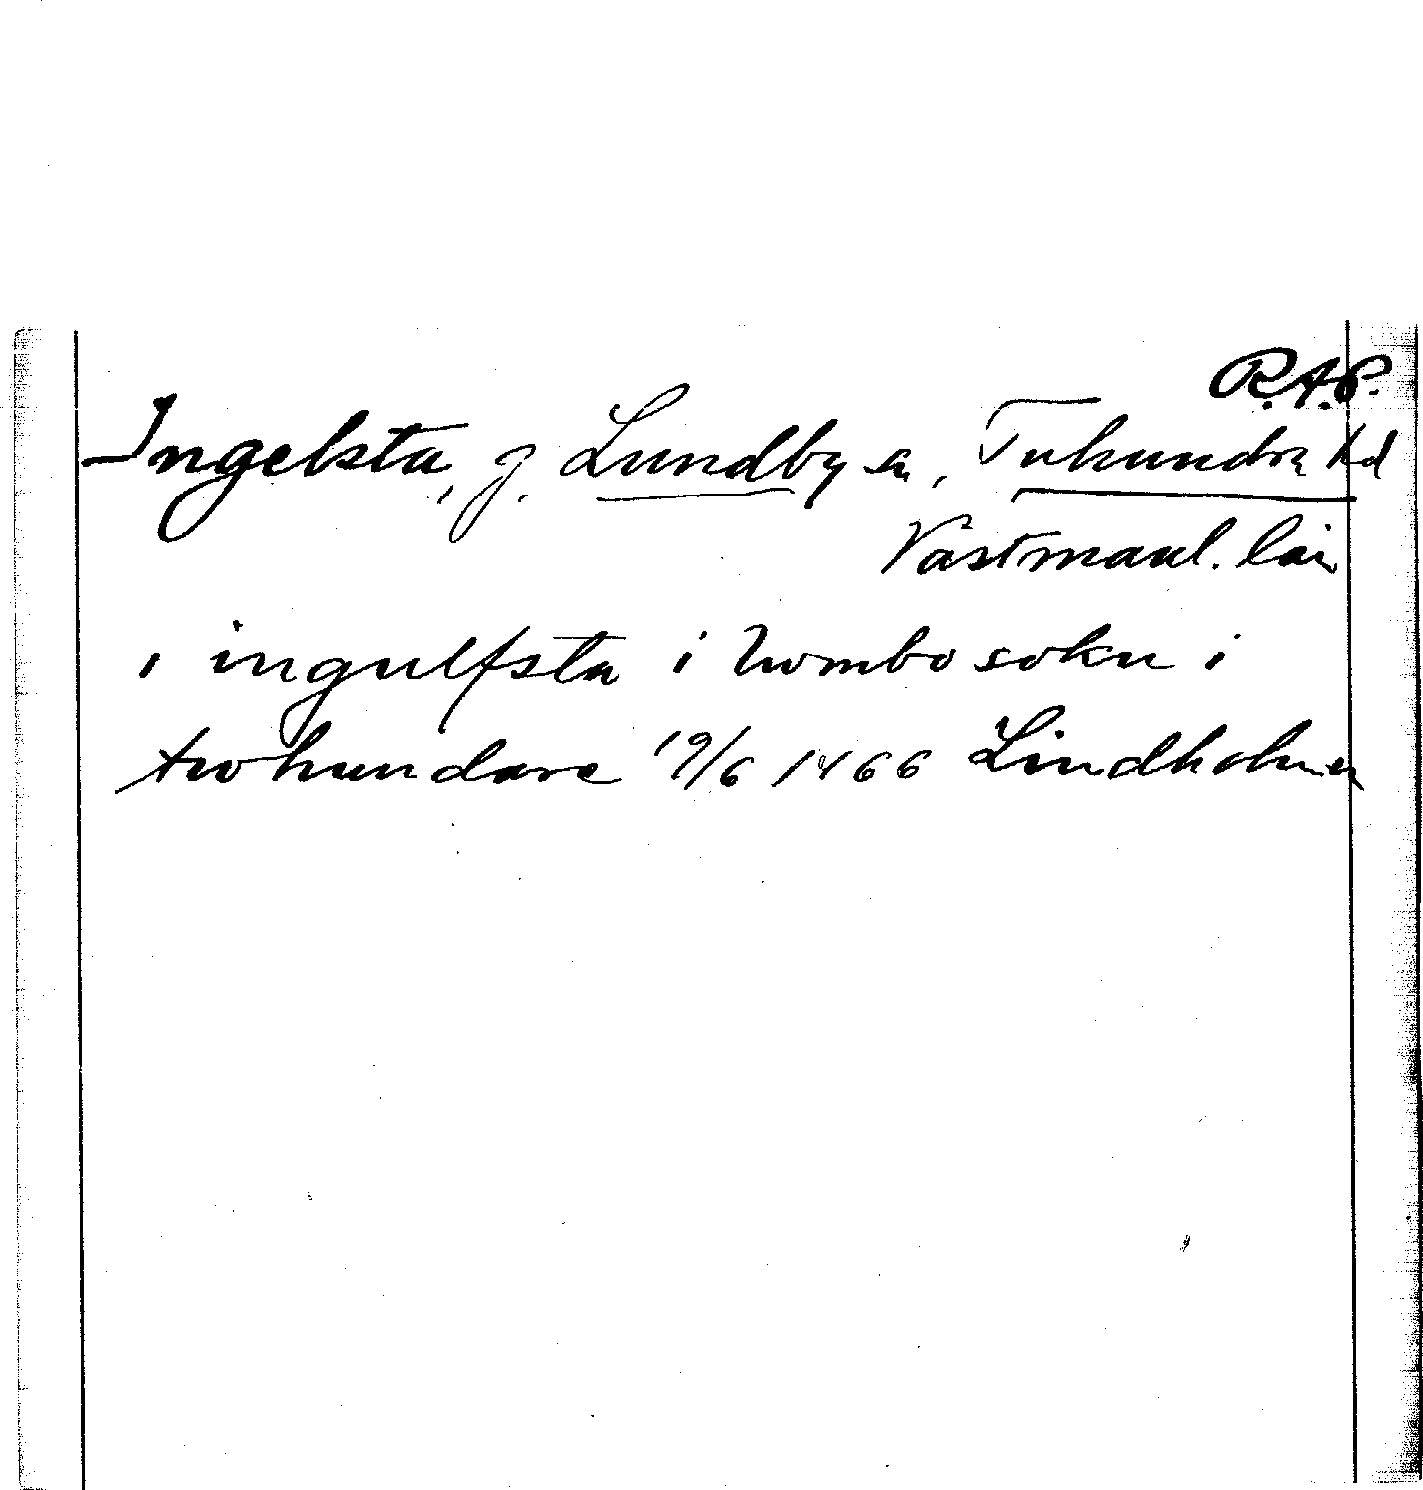 R.A.P.
Ingelsta, g. Lundby sn, Tuhundra hd
Västmanl. län
i ingulfsta i humbo sokn i
twhundare 19/6 1466 Lindholmen